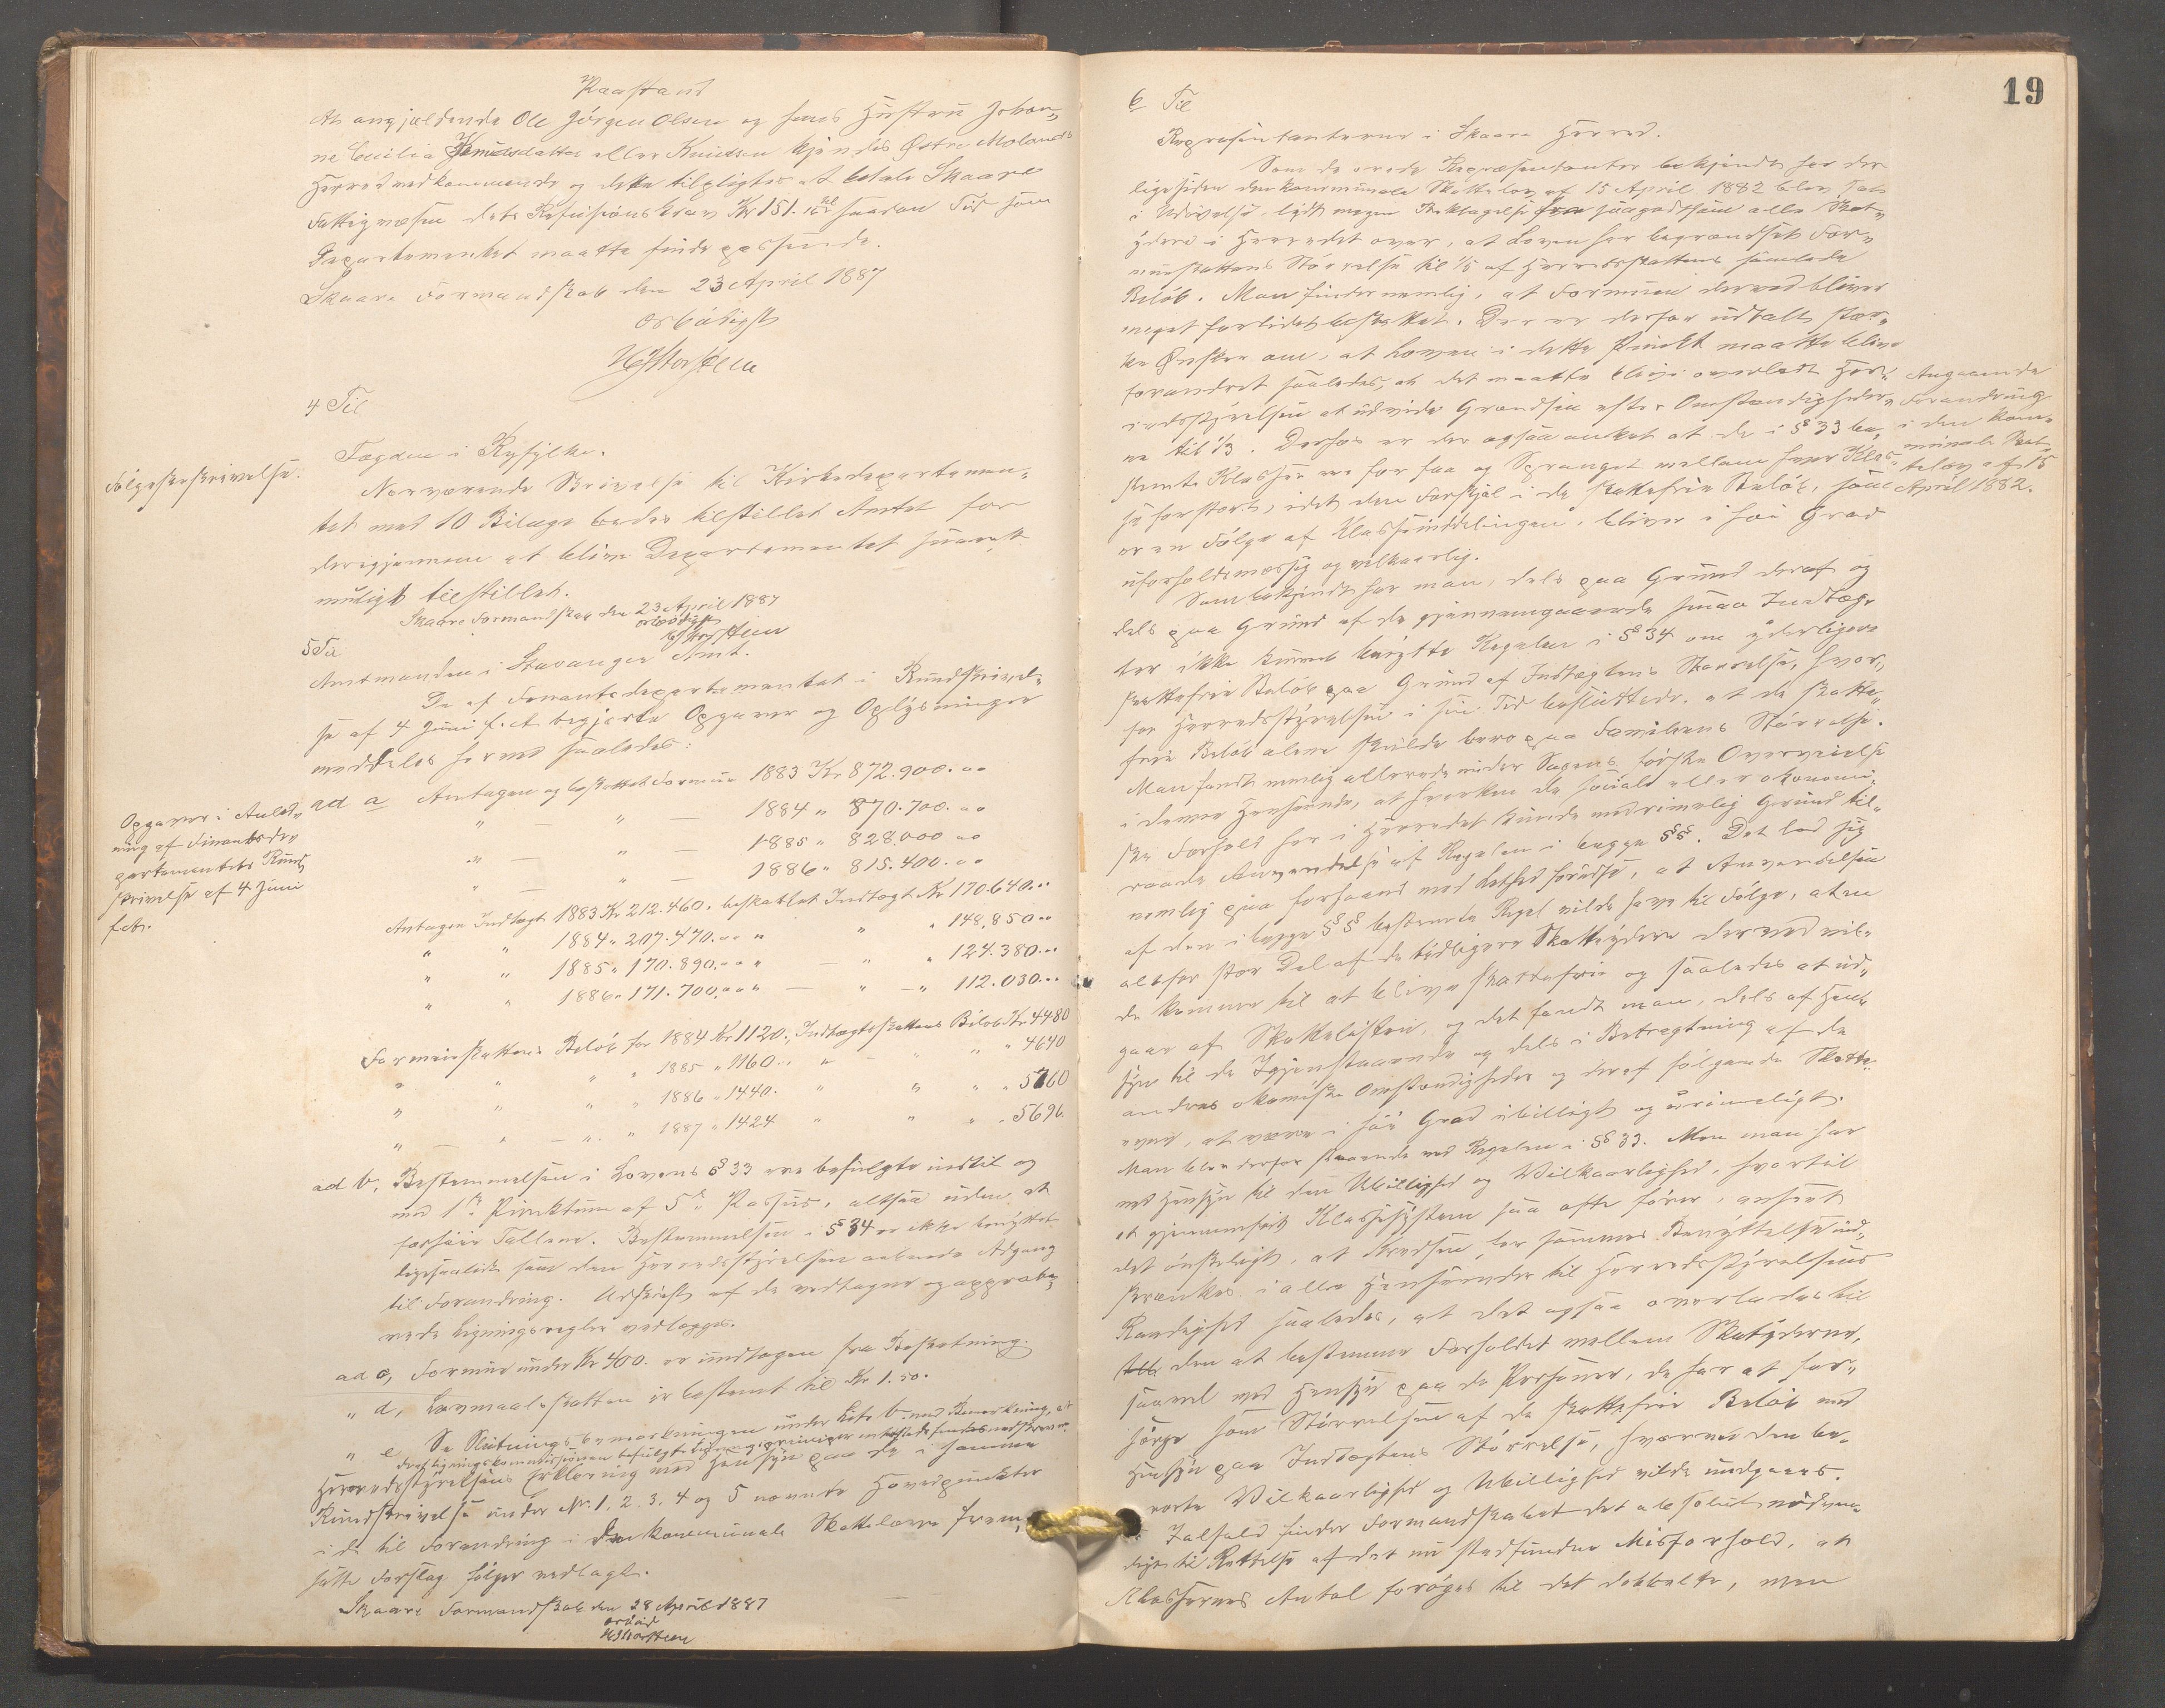 Paastand
At angjældende Ole Jörgen Olsen og hans Hustru Johan„
ne Cecilia Knudsdatter eller Knudsen kjendes Østre Molands
Herred vedkommende og dette tilpligtes at betale Skaare
Fattigvæsen dets Refusionskrav Kr 151. saadan Tid som
Departementet maatte finde passende.
Skaare Formandskab den 23 April 1887
Ærbödigst
4 Til
Fogden i Ryfylke.
Følgeskrivelse.
Nærværende Skrivelse til Kirkedepartemen„
tet med 10 Bilage bedes tilstillet Amtet for
derigjennem at blive Departementet snarest
muligt tilstillet.
Skaare Formandskab den 23 April 1887
ærbödigst
5 Til
Amtmanden i Stavanger Amt.
De af Finantsdepartementet i Rundskrivel„
se af 4 Juni f. A. begjærte Opgaver og Oplysninger
meddeles herved saaledes:
Opgaver i Anled„
ning af Finantsde„
partementets Rund„
skrivelse af 4 Juni
f.A.
ad a Antagen og beskattet Formue 1883 Kr 872.900.00
„ — „ — 1884 „ 870.700.00
„ — „ — 1885 „ 828.000 00
„ — „ — 1886 „ 815.400.00
Antagen Indtægt 1883 Kr 212.460. beskattet Indtægt Kr 170.640.00
„ „ 1884 „ 207.470.00 „ „ „ 148,850 00
„ „ 1885 „ 170.890.00 „ — „ „ 124.380.00
„ „ 1886 „ 171.700.00 „ — „ — „ 112.030.00
Formueskattens Beløb for 1884 Kr 1120., Indtægtsskattens Beløb Kr 4480
„ „ „ „ 1885 „ 1160.. „ — „ „ „ 4640
„ „ „ „ 1886 „ 1440. „ „ „ „ 5760
„ — „ — „ „ 1887 „ 1424 „ „ „ „ 5696
ad b, Bestemmelsen i Lovens § 33 ere befulgte indtil og
med 1ste Punktum af 5te Passus, altsaa uden at
forhøie Tallene. Bestemmelsen i § 34 er ikke benyttet
ligesaalidt som den Herredsstyrelsen aabnede Adgang
til Forandring. Udskrift af de vedtagne og approbe„
rede Ligningsregler vedlægges.
ad c, Formue under Kr 400. er undtagen fra Beskatning.
„ d, Lavmaalsskatten er bestemt til Kr 1.50.
„ e, Se Slutningsbemærkningen under Litr b. med Bemærkning, at
Herredsstyrelsens Erklæring med Hensyn paa de i samme
Rundskrivelse under Nr. 1, 2, 3, 4 og 5 nævnte Hovedpunkter
i de til Forandring i den kommunale Skattelove frem„
satte Forslag følger vedlagt.
Skaare Formandskab den 28 April 1887
ærböd
19
6 Til
Repræsentanterne i Skaare Herred.
Som de ærede Repræsentanter bekjendt har der
ligesiden den kommunale Skattelov af 15 April 1882 blev sat
i Udøvelse, lydt megen Beklagelse fra saagodtsom alle Skat„
ydere i Herredet over, at Loven har begrændset For„
mueskattens Størrelse til 1/5 af Herredsskattens samlede
Beløb. Man finder nemlig, at Formuen derved bliver
meget forlidet beskattet. Der er derfor udtalt stær„
ke Ønsker om, at Loven i dette Punkt maatte blive
forandret saaledes, at det maatte blive overladt Her„
redsstyrelsen at udvide Grændsen efter Omstændigheder„
ne til 1/3. Derhos er der ogsaa anket at de i § 33 be„
stemte Klasser ere for faa og Spranget mellem hver Klas„
se forstort, idet den Forskjel i de skattefrie Beløb, som
er en Følge af Klasseinddelingen, bliver i høi Grad
uforholdsmæssig og vilkaarlig.
Angaaende
Forandring
i den kom„
munale Skat„
telov af 15
April 1882.
Som bekjendt har man, dels paa Grund deraf og
dels paa Grund af de gjennemgaaende smaa Indtæg„
ter ikke kunnet benytte Regelen i § 34 om yderligere
skattefrie Beløb paa Grund af Indtægtens Størrelse, hvor„
for Herredsstyrelsen i sin Tid besluttede, at de skatte„
frie Beløb alene skulde bero paa Familiens Størrelse.
Man fandt nemlig allerede under Sagens første Overveielse
i denne Henseende, at hverken de sociale eller økonomi„
ske Forhold her i Herredet kunde med rimelig Grund til„
raade Anvendelse af Regelen i begge §§. Det lod sig
nemlig paa forhaand med Lethed forudse, at Anvendelsen
af den i begge §§ bestemte Regel vilde have til Følge, at en
altfor stor Del af de dygtigere Skatteydere derved vil„
de komme til at blive skattefrie og saaledes at ud„
gaa af Skattelisten, og det fandt man, dels af Hen„
syn til de Igjenstaaende og dels i Betragtning af de
andres økonomiske Omstændigheder og deraf følgende Skatte„
evne, at være i høi Grad ubilligt og urimeligt.
Man blev derfor staaende ved Regelen i § 33. Men man har
med Hensyn til den Ubillighed og Vilkaarlighed, hvortil
et gjennemført Klassesystem saa ofte fører, anseet
det ønskeligt, at Kredsen for sammes Benyttelse ind„
skrænkes i alle Henseender til Herredsstyrelsens
Raadighed saaledes, at det ogsaa overlades til
den at bestemme Forholdet mellem Skatyderne,
saavel med Hensyn paa de Personer, de har at for„
sørge som Størrelsen af de skattefrie Beløb med
Hensyn paa Indtægtens Størrelse, hvorved den be„
rørte Vilkaarlighed og Ubillighed vilde undgaaes.
Ialfald finder Formandskabet det absolut nødven„
digt til Rettelse af det nu stedfundne Misforhold, at
Klassernes Antal forøges til det dobbelte, men